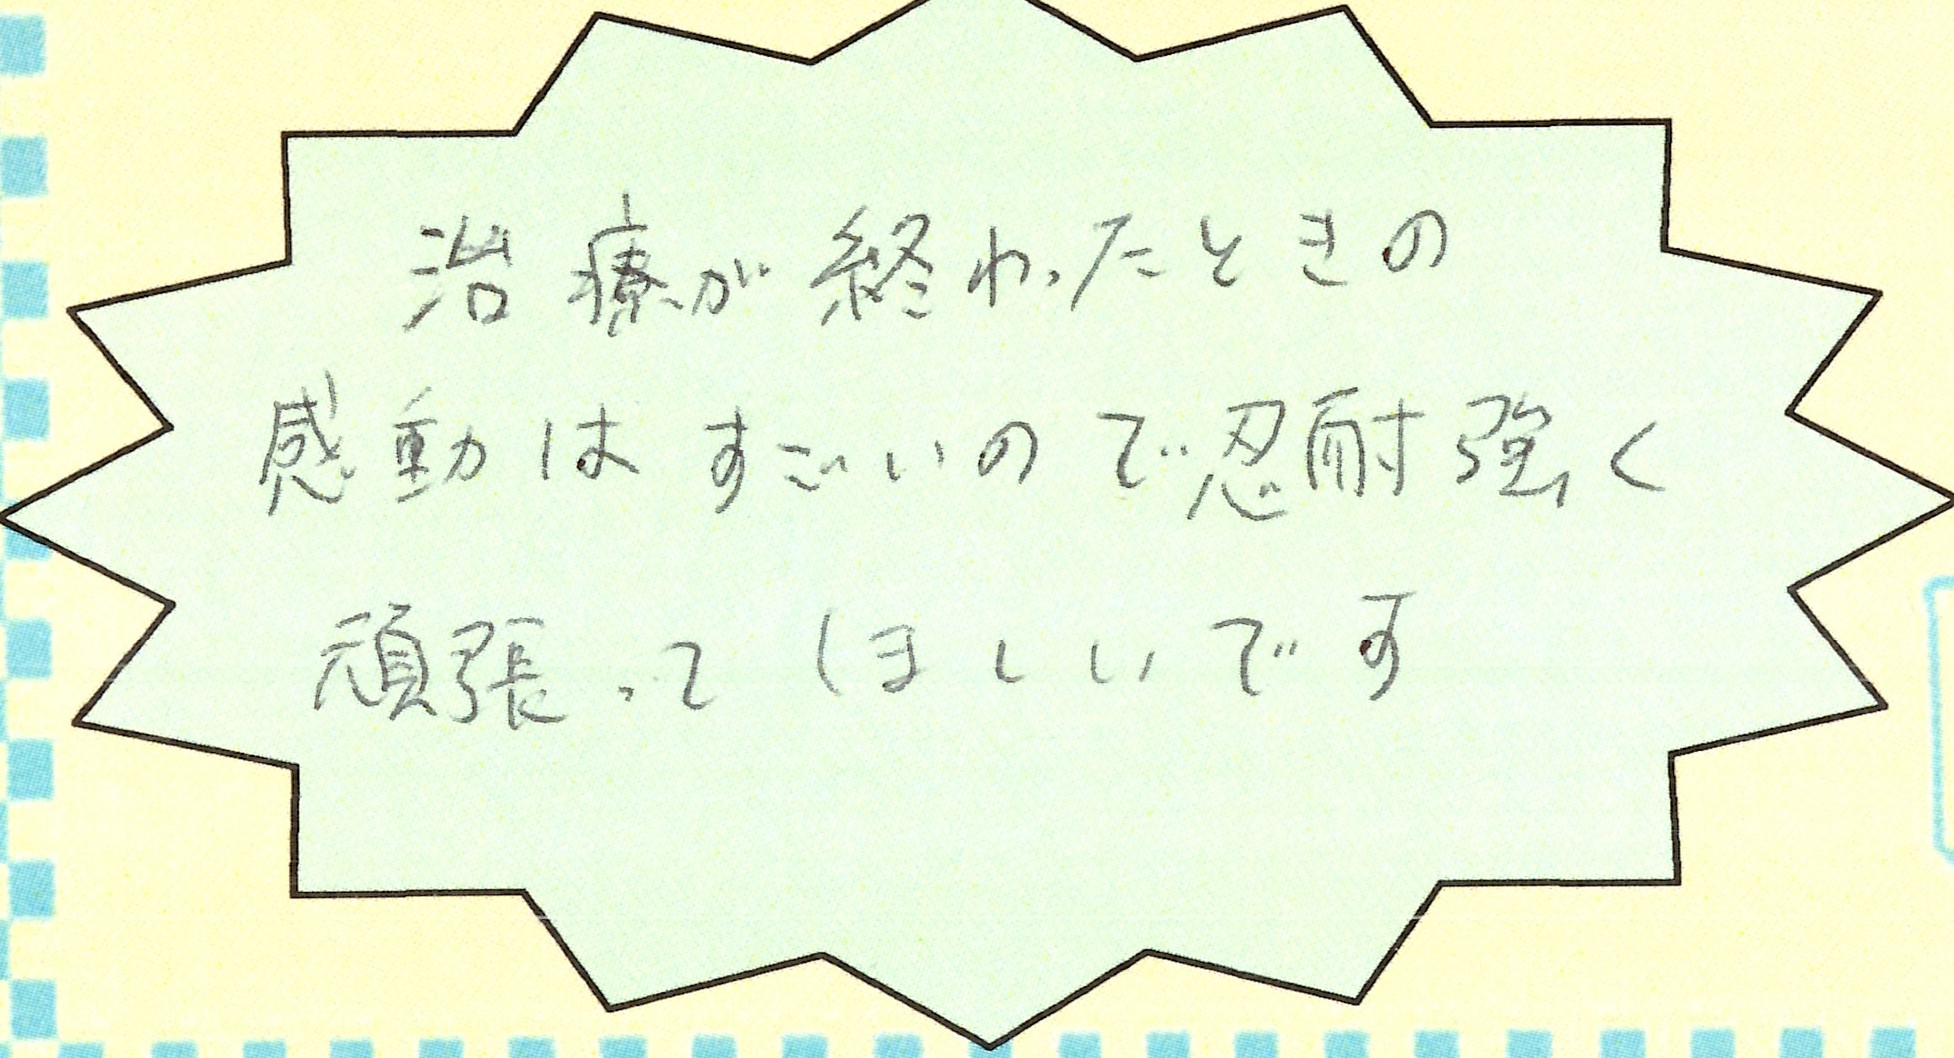 治療が終わったときの
感動はすごいので忍耐強く
頑張ってほしいです